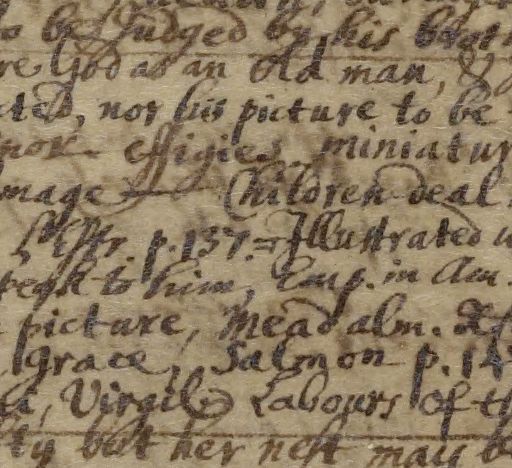 to be Judged by his broth
re God as an Old man, &
cted, nor his picture to be
nor effigies miniatur
mage Children deal
p. 137. Illustrated w
speak to him, Emp. in Am.
picture, Mead alm.
, grace, Salmon p. 14
Virgil Labours of th
ty but her nest may b